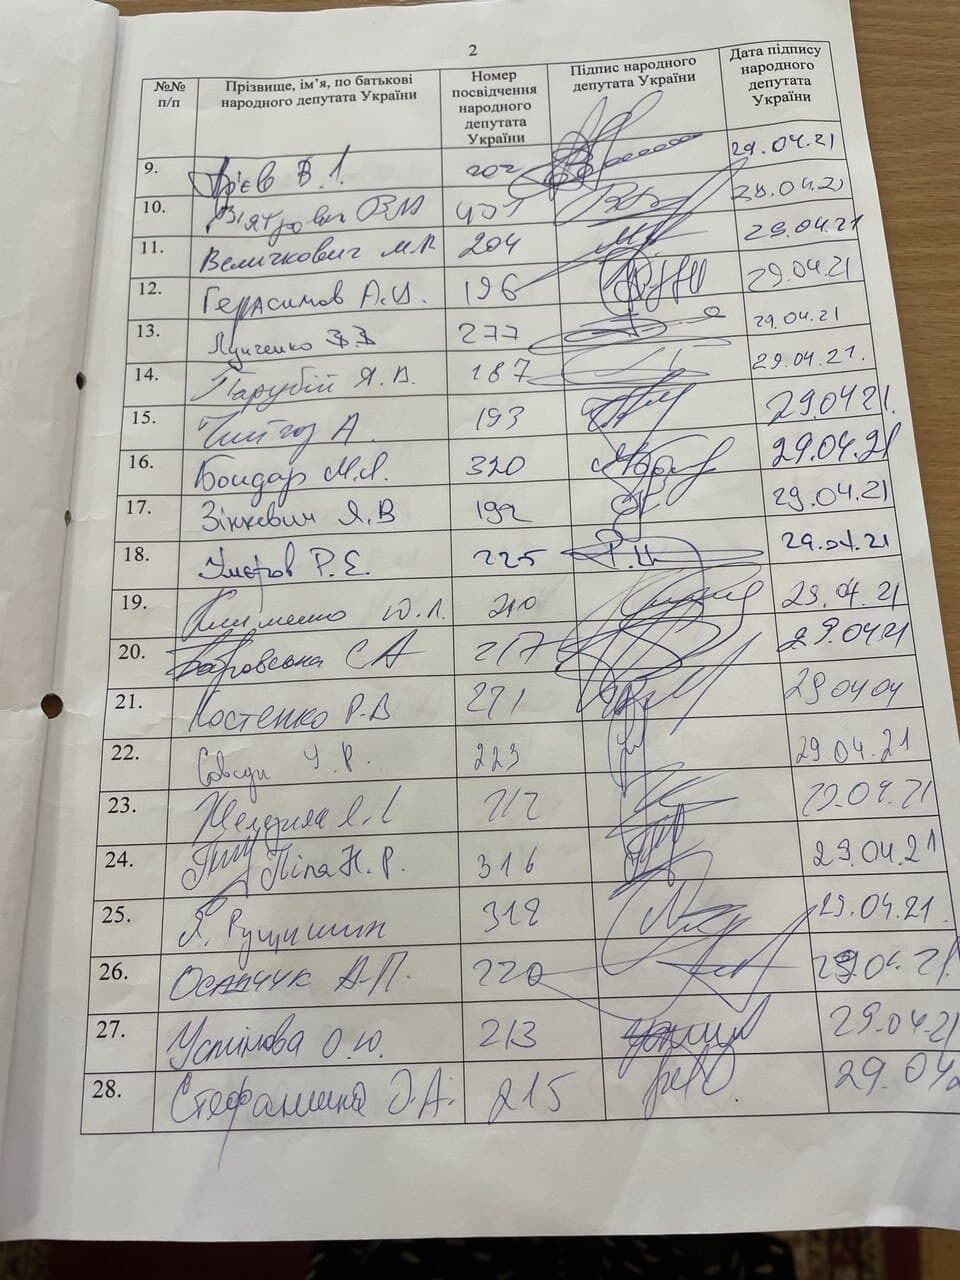 2
№№ п/п Прізвище, ім’я, по батькові народного депутата України Номер посвідчення народного депутата України Підпис народного депутата України Дата підпису народного депутата України
9. Ар'єв В.І. 202 29.04.21
10. В'ятрович В.М 401 29.04.21
11. Величкович М.Р. 204 29.04.21
12. Герасимов А. 196 29.04.21
13. Лунченко В.В 277 29.04.21
14. Парубій А.В. 187 29.04.21.
15. А. 193 29.04 21.
16. Бондар М.Л. 320 29.04.21
17. Зінкевич Я.В 192 29.04.21
18. Умєров Р.Е. 225 29.04.21
19. Клименко Ю.Л. 210 29.04.21
20. Боровська С А 217 29.04 21
21. Костенко Р.В 271 29 04 04
22. Совсун І.Р. 223 29.04.21
23. 212 29.04.21
24. Піпа Н.Р. 316 29.04.21
25. Я. Рущишин 318 29.04.21.
26. Осадчук А.П. 220 29.04.21.
27. Устінова О.Ю. 213 29.04.21
28. Стефанишина О.А. 215 29.04.2